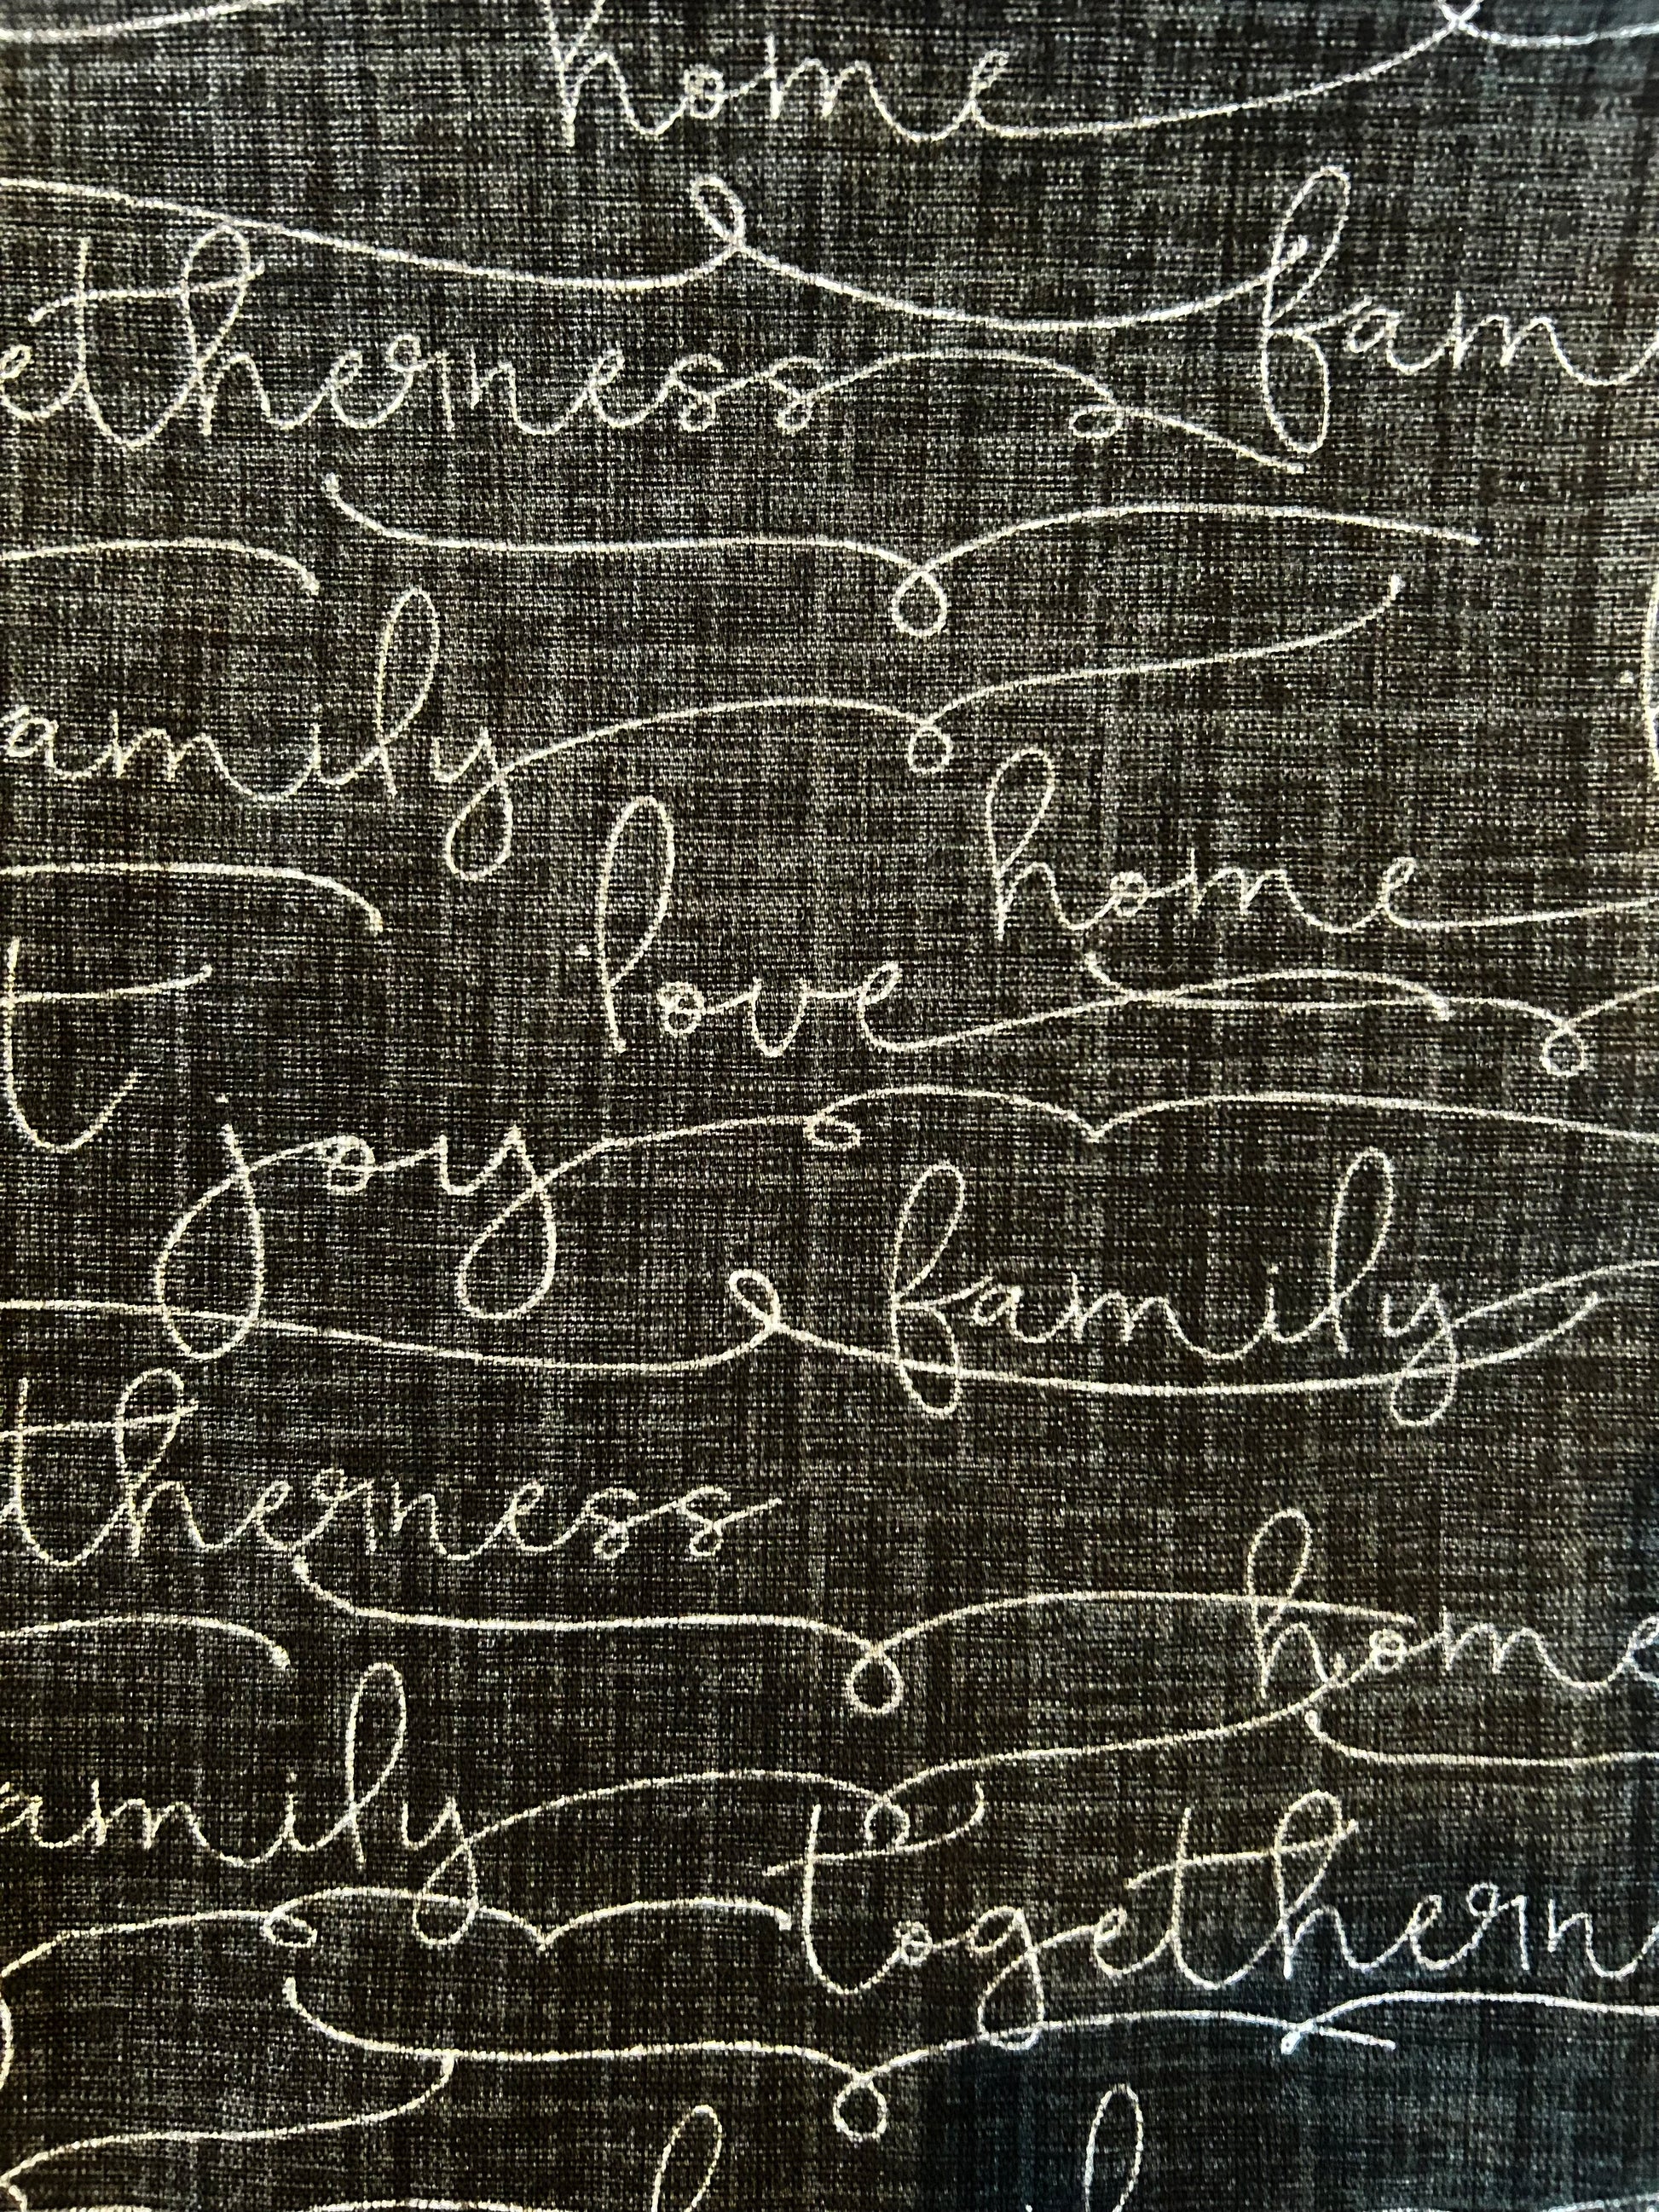 home
fam
etherness
amily
home
love
t
joy
family
therness
home
amily
togethern